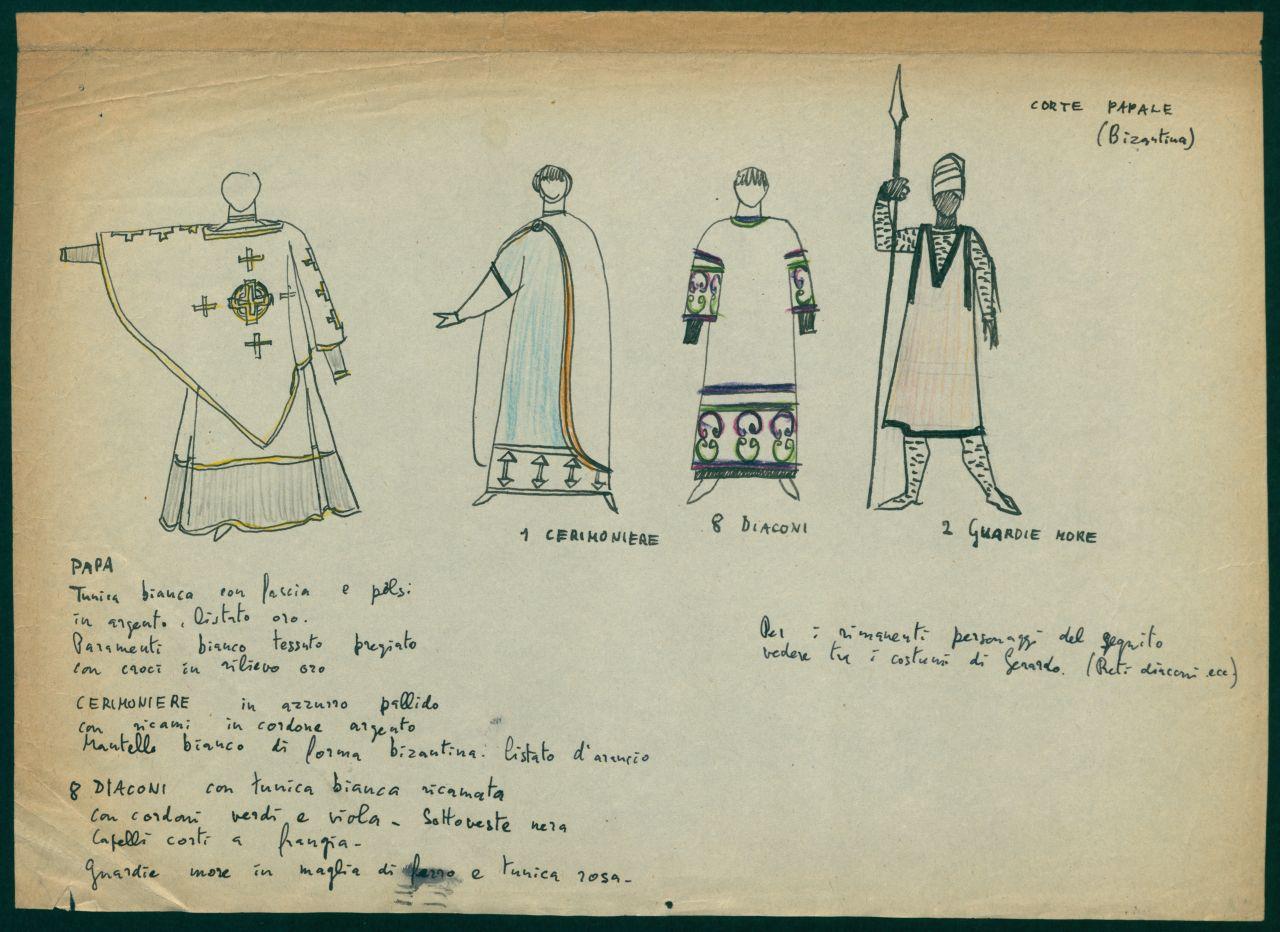 CORTE PAPALE
(Bizantina)
1 CERIMONIERE
8 DIACONI
2 GUARDIE MORE
PAPA
Tunica bianca con fascia e polsi
in argento, listato oro.
Paramenti bianco tessuto pregiato
con croci in rilievo oro
CERIMONIERE in azzurro pallido
con ricami in cordone argento
Mantello bianco di forma bizantina. listato d'arancio
8 DIACONI con tunica bianca ricamata
con cordoni verdi e viola - Sottoveste nera
Capelli corti a frangia -
Guardie more in maglia di ferro e tunica rosa -
Per i rimanenti personaggi del seguito
vedere tra i costumi di Gerardo. (Preti diaconi ecc)